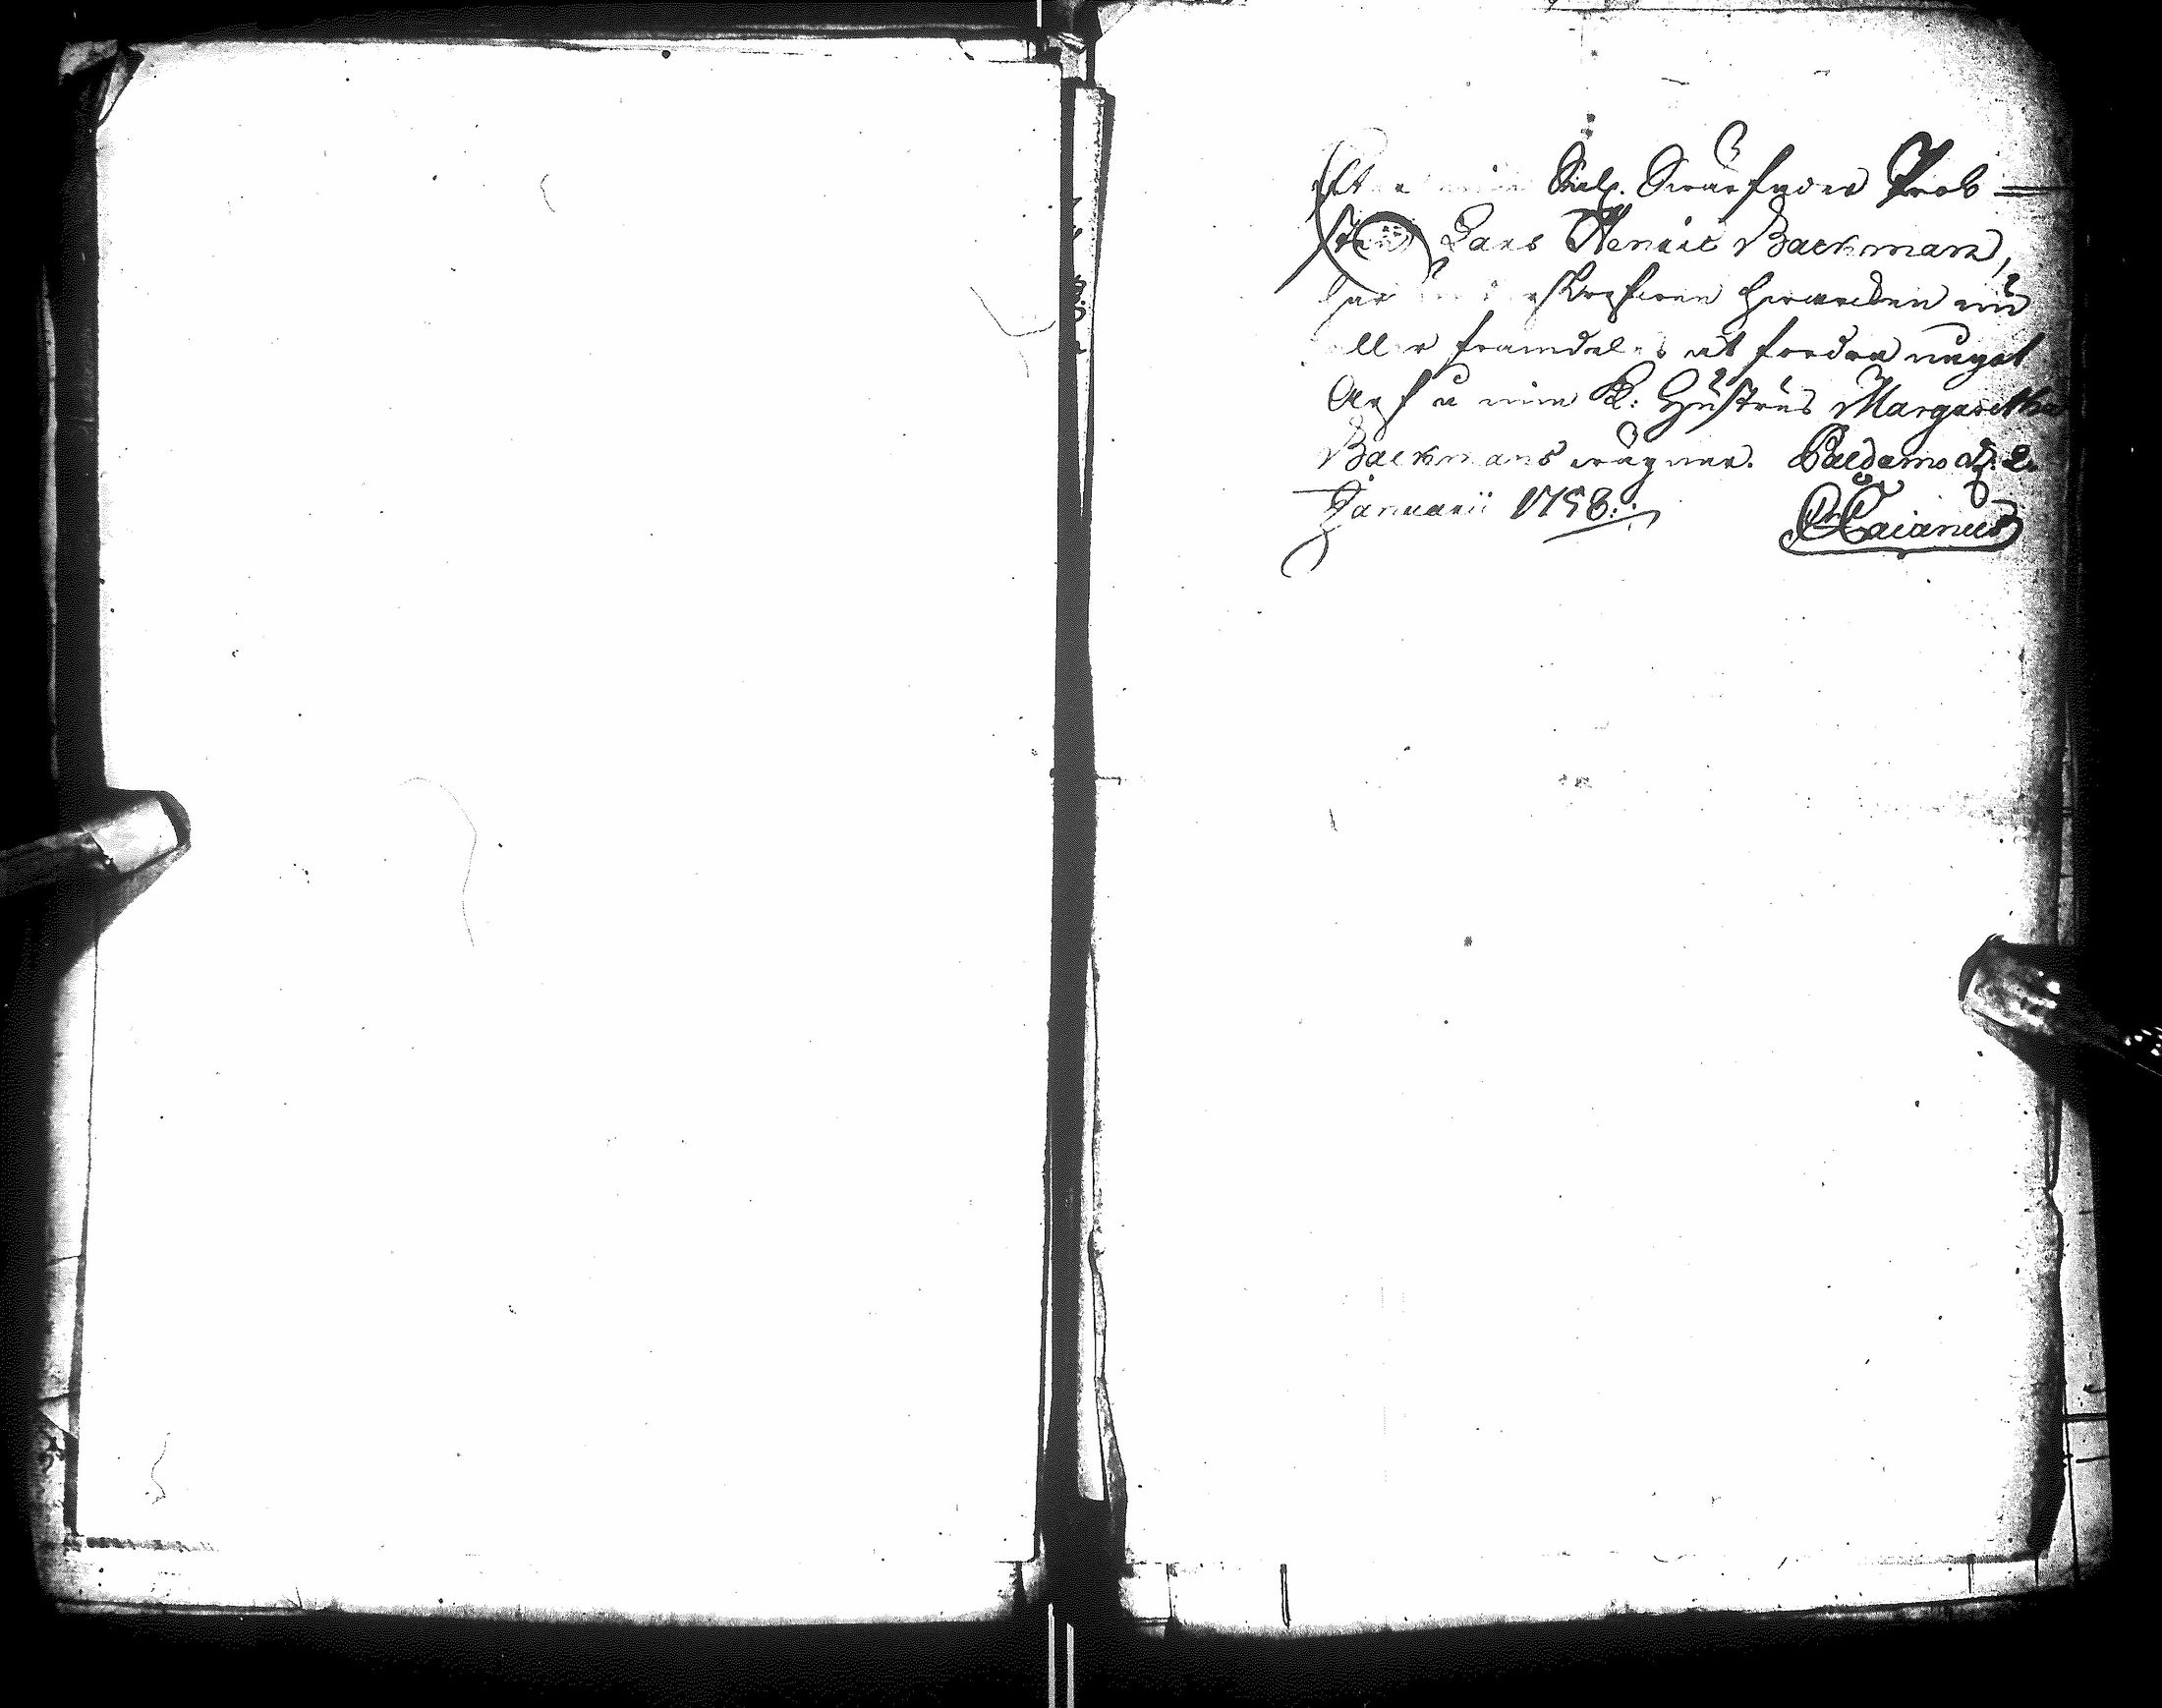 Efter min Sal. Swärfader Prob=
sten Lars Henric Backman,
har in[...] hwarcken nu
eller framdeles at fordra något
Arf å min K: Hustrus Margaretha
Backmans wägnar. Paldamo d. 2.
Januarii 1758.
Caianus